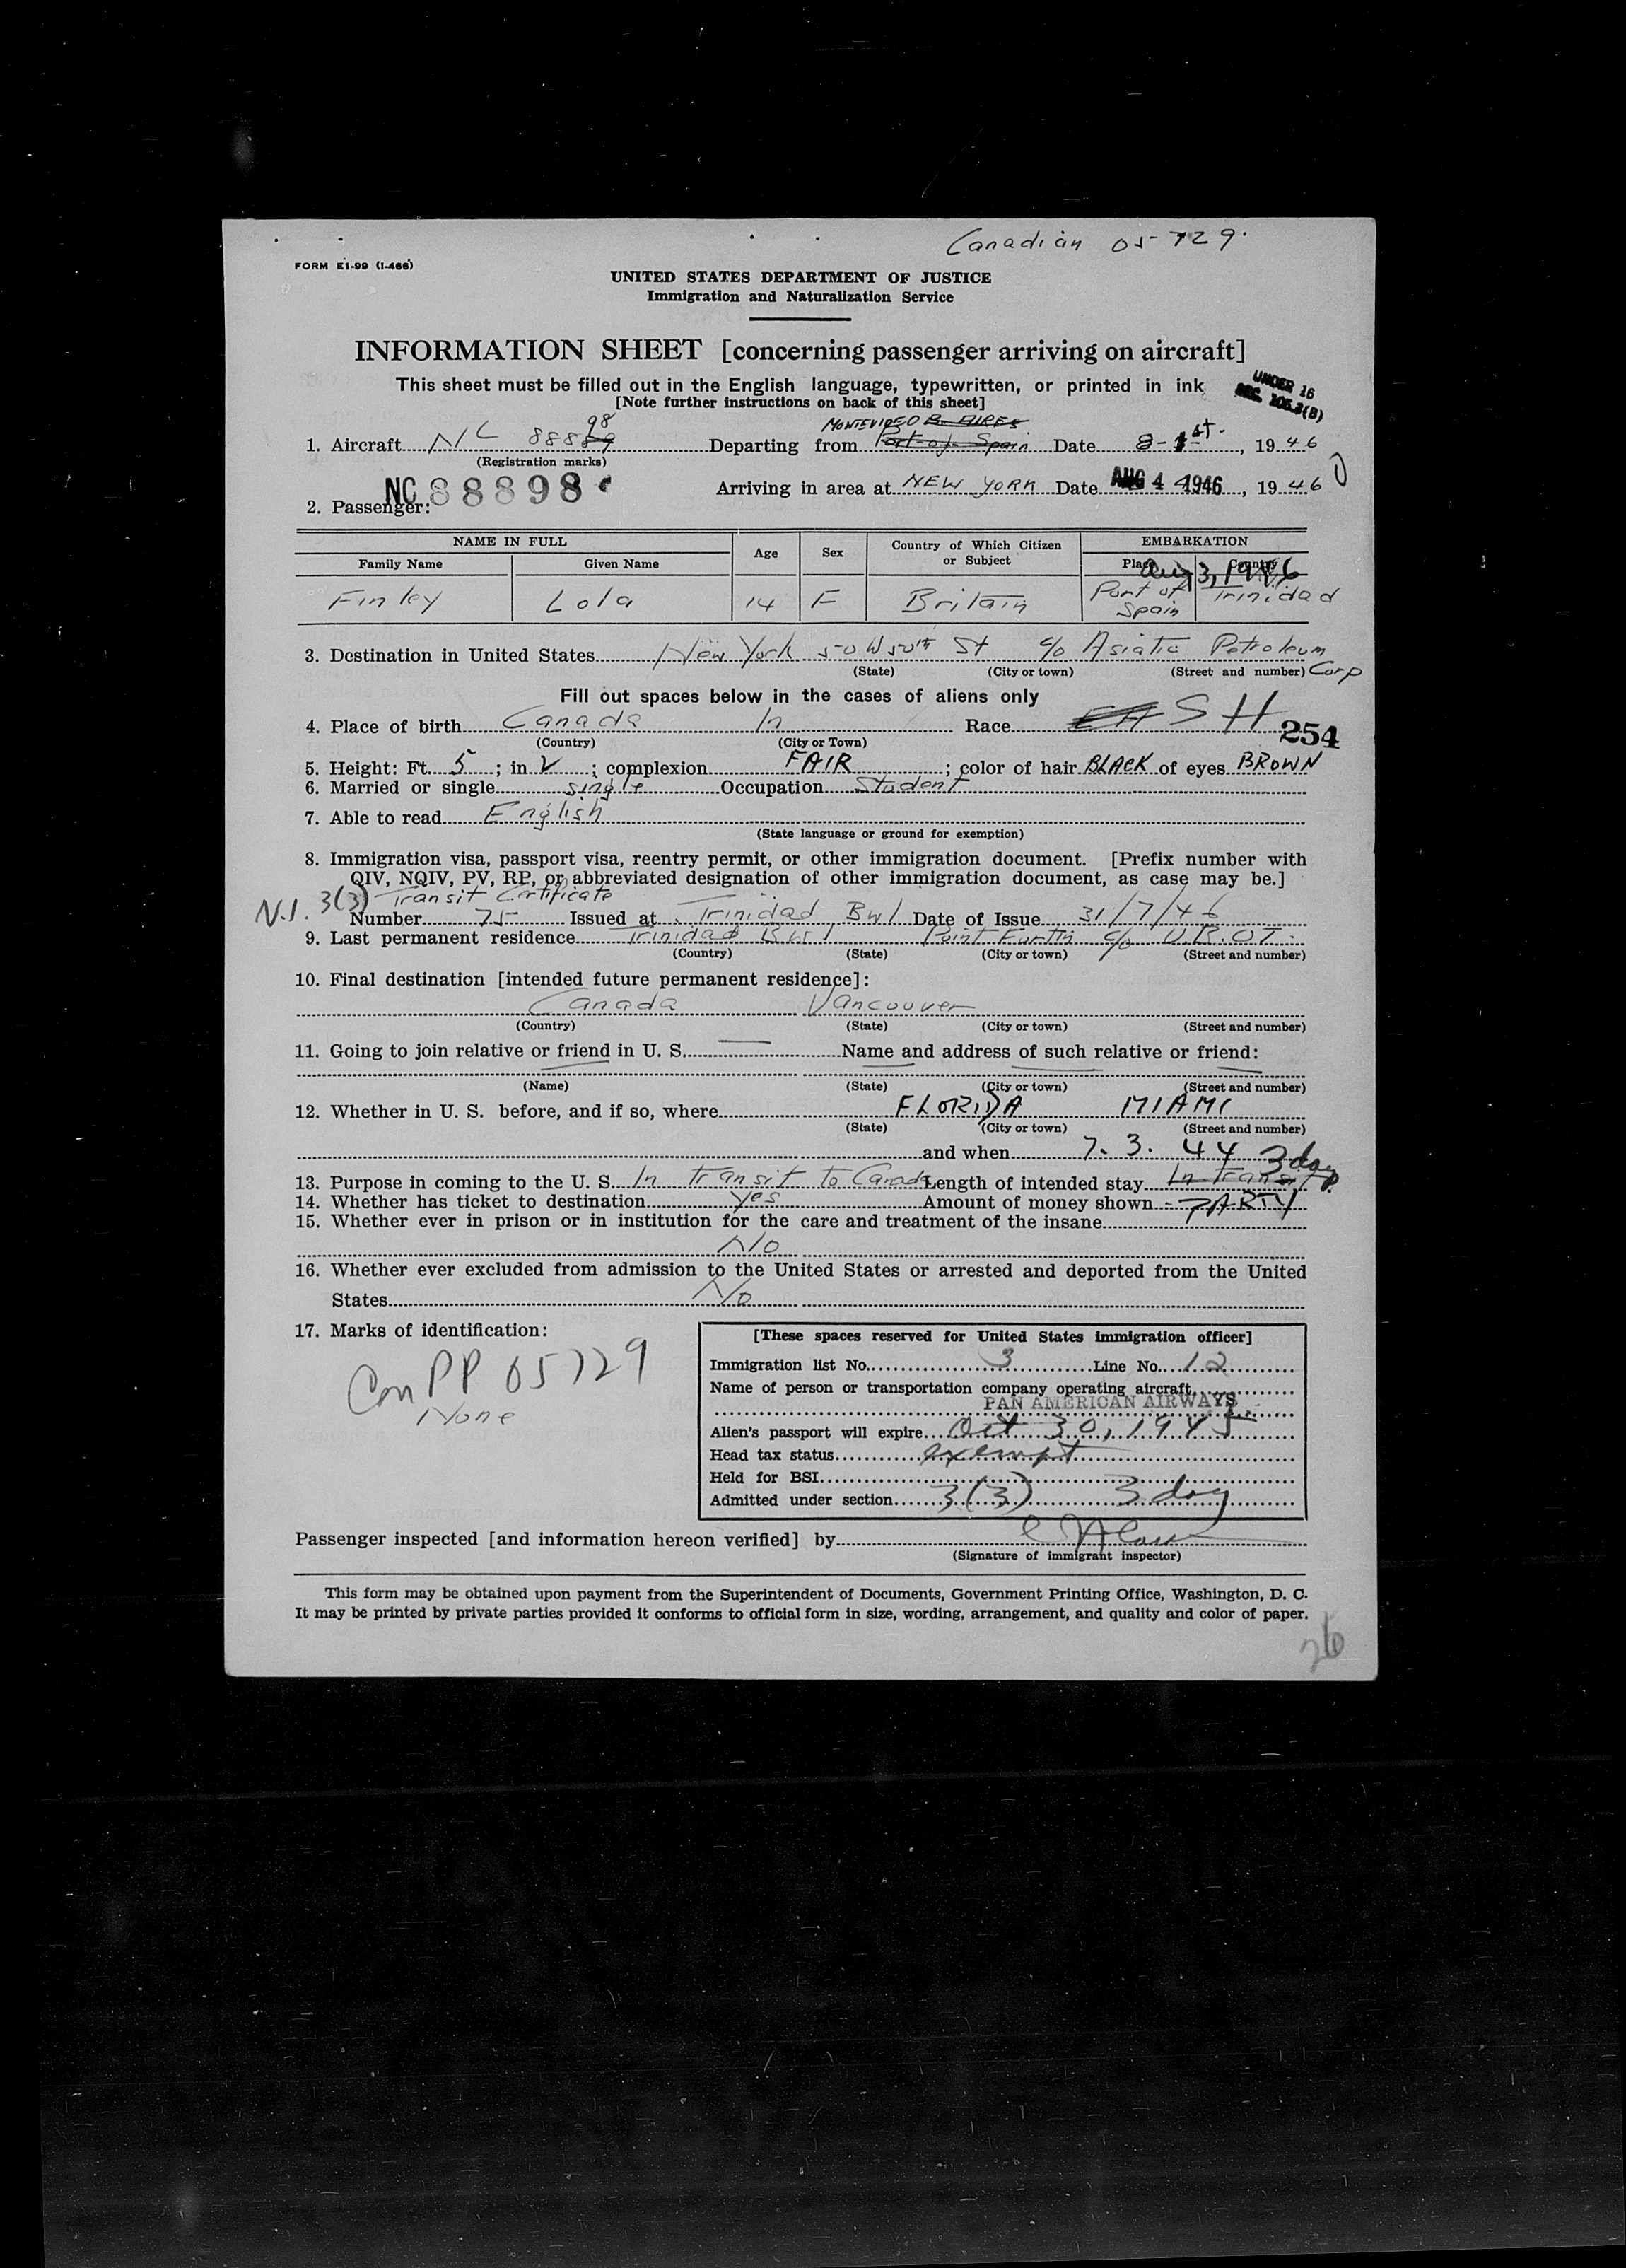 Canadian 05729
FORM E1-99 (I-466)
UNITED STATES DEPARTMENT OF JUSTICE
Immigration and Naturalization Service
INFORMATION SHEET [concerning passenger arriving on aircraft]
This sheet must be filled out in the English language, typewritten, or printed in ink
[Note further instructions on back of this sheet]
UNDER 16
SEC. 105.3(B)
98
MONTEVIDEO B. AIRES
1. Aircraft NC 88889 Departing from Port of Spain Date 8-1st-, 1946
(Registration marks)
NC 88898
Arriving in area at NEW YORK Date AUG 4 1946, 1946
2. Passenger:
NAME IN FULL Age Sex Country of Which Citizen or Subject EMBARKATION
Family Name Given Name Place Country
Aug 3, 1946
Finley Lola 14 F Britain Port of Spain Trinidad
3. Destination in United States New York 50 W 50th St c/o Asiatic Petroleum Corp
(State) (City or town) (Street and number)
Fill out spaces below in the cases of aliens only
4. Place of birth Canada In Race SH
254
(Country) (City or Town)
5. Height: Ft. 5; in 2; complexion FAIR; color of hair BLACK of eyes BROWN
6. Married or single single Occupation Student
7. Able to read English
(State language or ground for exemption)
8. Immigration visa, passport visa, reentry permit, or other immigration document. [Prefix number with
QIV, NQIV, PV, RP, or abbreviated designation of other immigration document, as case may be.]
N.I. 3(3) Transit Certificate
Number 75 Issued at Trinidad BWI Date of Issue 31/7/46
9. Last permanent residence Trinidad BWI Point Fortin c/o U.B.OT.
(Country) (State) (City or town) (Street and number)
10. Final destination [intended future permanent residence]:
Canada Vancouver
(Country) (State) (City or town) (Street and number)
11. Going to join relative or friend in U. S. Name and address of such relative or friend:
(Name) (State) (City or town) (Street and number)
12. Whether in U. S. before, and if so, where FLORIDA MIAMI
(State) (City or town) (Street and number)
and when 7. 3. 44
3 days
13. Purpose in coming to the U. S. In transit to Canada Length of intended stay In Transit
14. Whether has ticket to destination Yes Amount of money shown PARTY
15. Whether ever in prison or in institution for the care and treatment of the insane
No
16. Whether ever excluded from admission to the United States or arrested and deported from the United
States No
17. Marks of identification:
Can PP 05729
None
[These spaces reserved for United States immigration officer]
Immigration list No. 3 Line No. 12
Name of person or transportation company operating aircraft
PAN AMERICAN AIRWAYS
Alien's passport will expire Oct 30, 194
Head tax status exempt
Held for BSI
Admitted under section 3(3) 3 day
Passenger inspected [and information hereon verified] by
(Signature of immigrant inspector)
This form may be obtained upon payment from the Superintendent of Documents, Government Printing Office, Washington, D. C.
It may be printed by private parties provided it conforms to official form in size, wording, arrangement, and quality and color of paper.
26